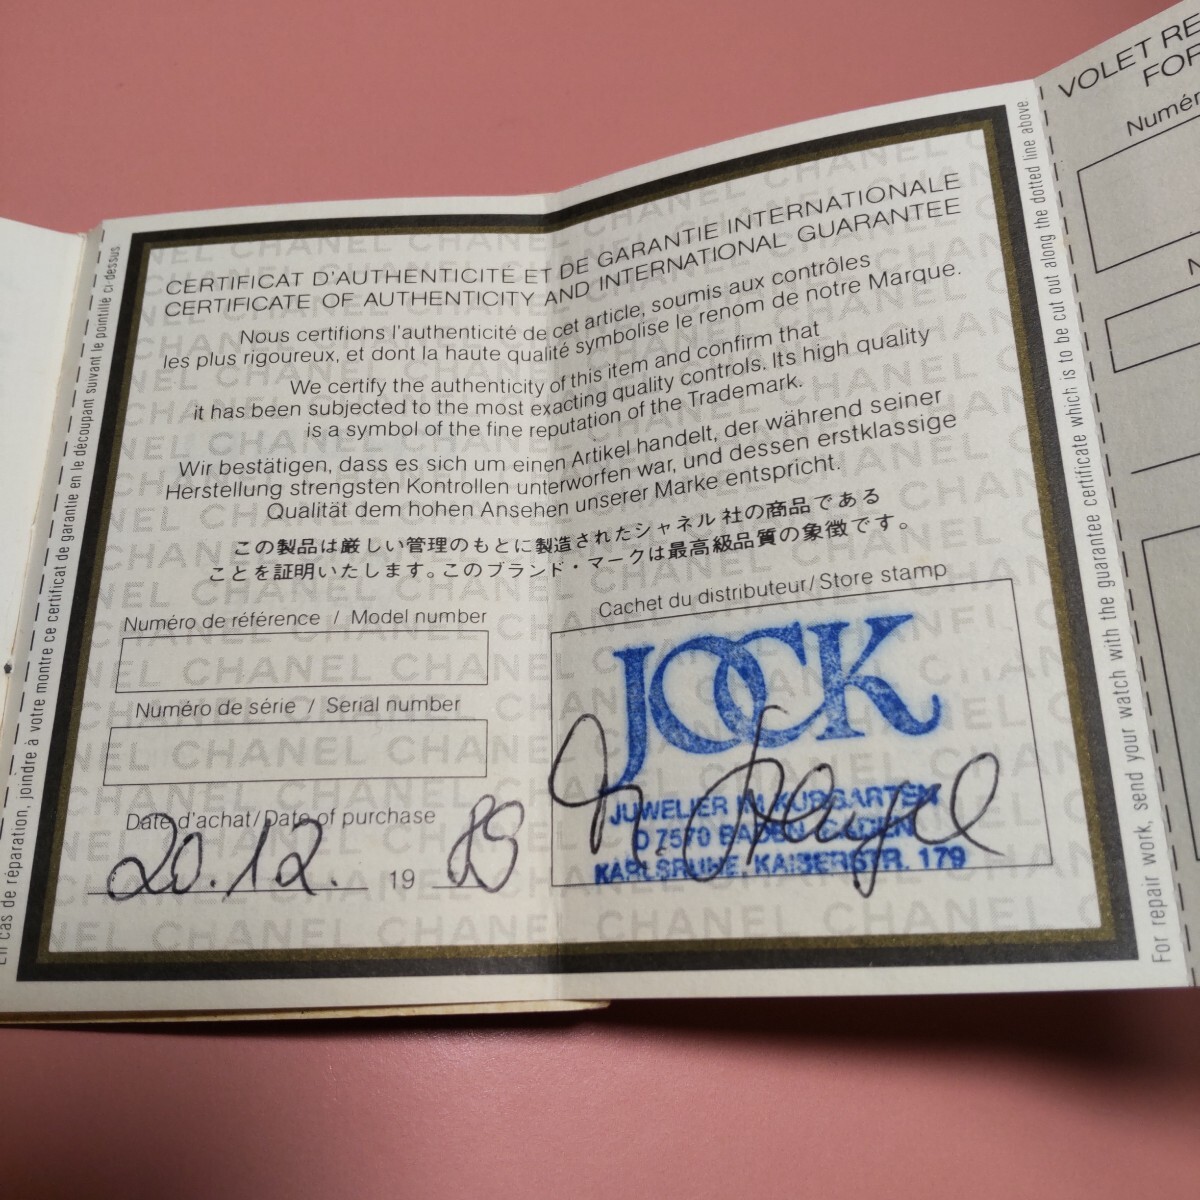 CERTIFICAT D'AUTHENTICITE ET DE GARANTIE INTERNATIONALE
CERTIFICATE OF AUTHENTICITY AND INTERNATIONAL GUARANTEE
Nous certifions l'authenticité de cet article, soumis aux contrôles
les plus rigoureux, et dont la haute qualité symbolise le renom de notre Marque.
We certify the authenticity of this item and confirm that
it has been subjected to the most exacting quality controls. Its high quality
is a symbol of the fine reputation of the Trademark.
Wir bestätigen, dass es sich um einen Artikel handelt, der während seiner
Herstellung strengsten Kontrollen unterworfen war, und dessen erstklassige
Qualität dem hohen Ansehen unserer Marke entspricht.
この製品は厳しい管理のもとに製造されたシャネル社の商品である
ことを証明いたします。このブランド・マークは最高級品質の象徴です。
Numéro de référence / Model number
Numéro de série / Serial number
Date d'achat/Date of purchase
20.12. 19 89
Cachet du distributeur/Store stamp
JOCK
JUWELIER IM KURGARTEN
D 7570 BADEN-BADEN
KARLSRUHE, KAISERSTR. 179
En cas de réparation, joindre à votre montre ce certificat de garantie en le découpant suivant le pointillé ci-dessus
For repair work, send your watch with the guarantee certificate which is to be cut out along the dotted line above.
VOLET RE
FOR
Numér
N
CHANEL